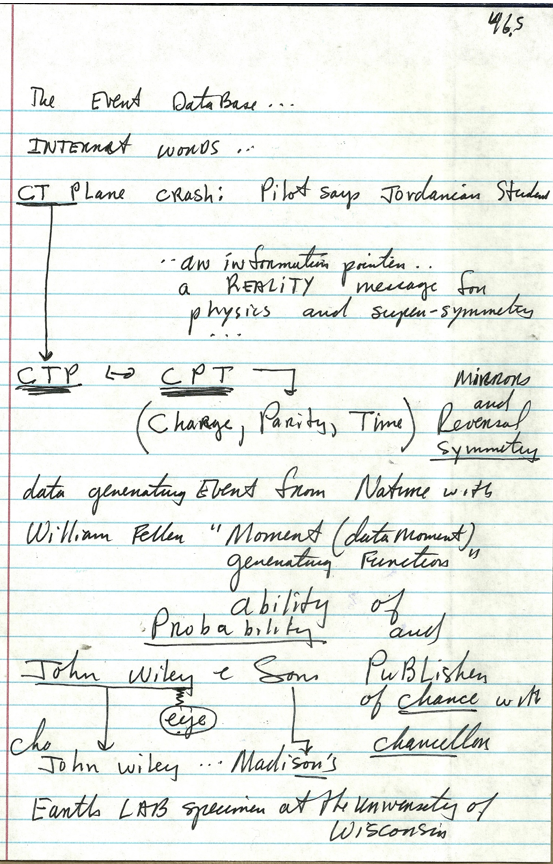 46.5
The Event DataBase...
INTERNAt words ...
CT Plane crash: Pilot says Jordanian Student
..an information pointer..
a REALITY message for
physics and super-symmetry
...
CTP ↔ CPT
Mirrors
and
Reversal
symmetry
(Charge, Parity, Time)
data generating Event from Nature with
William Feller "Moment (data moment)
generating Function"
ability of
Probability and
John Wiley & Sons PuBLisher
of chance with
eye
chancellor
cho
John wiley ... Madison's
Earth LAB specimen at the University of
Wisconsin